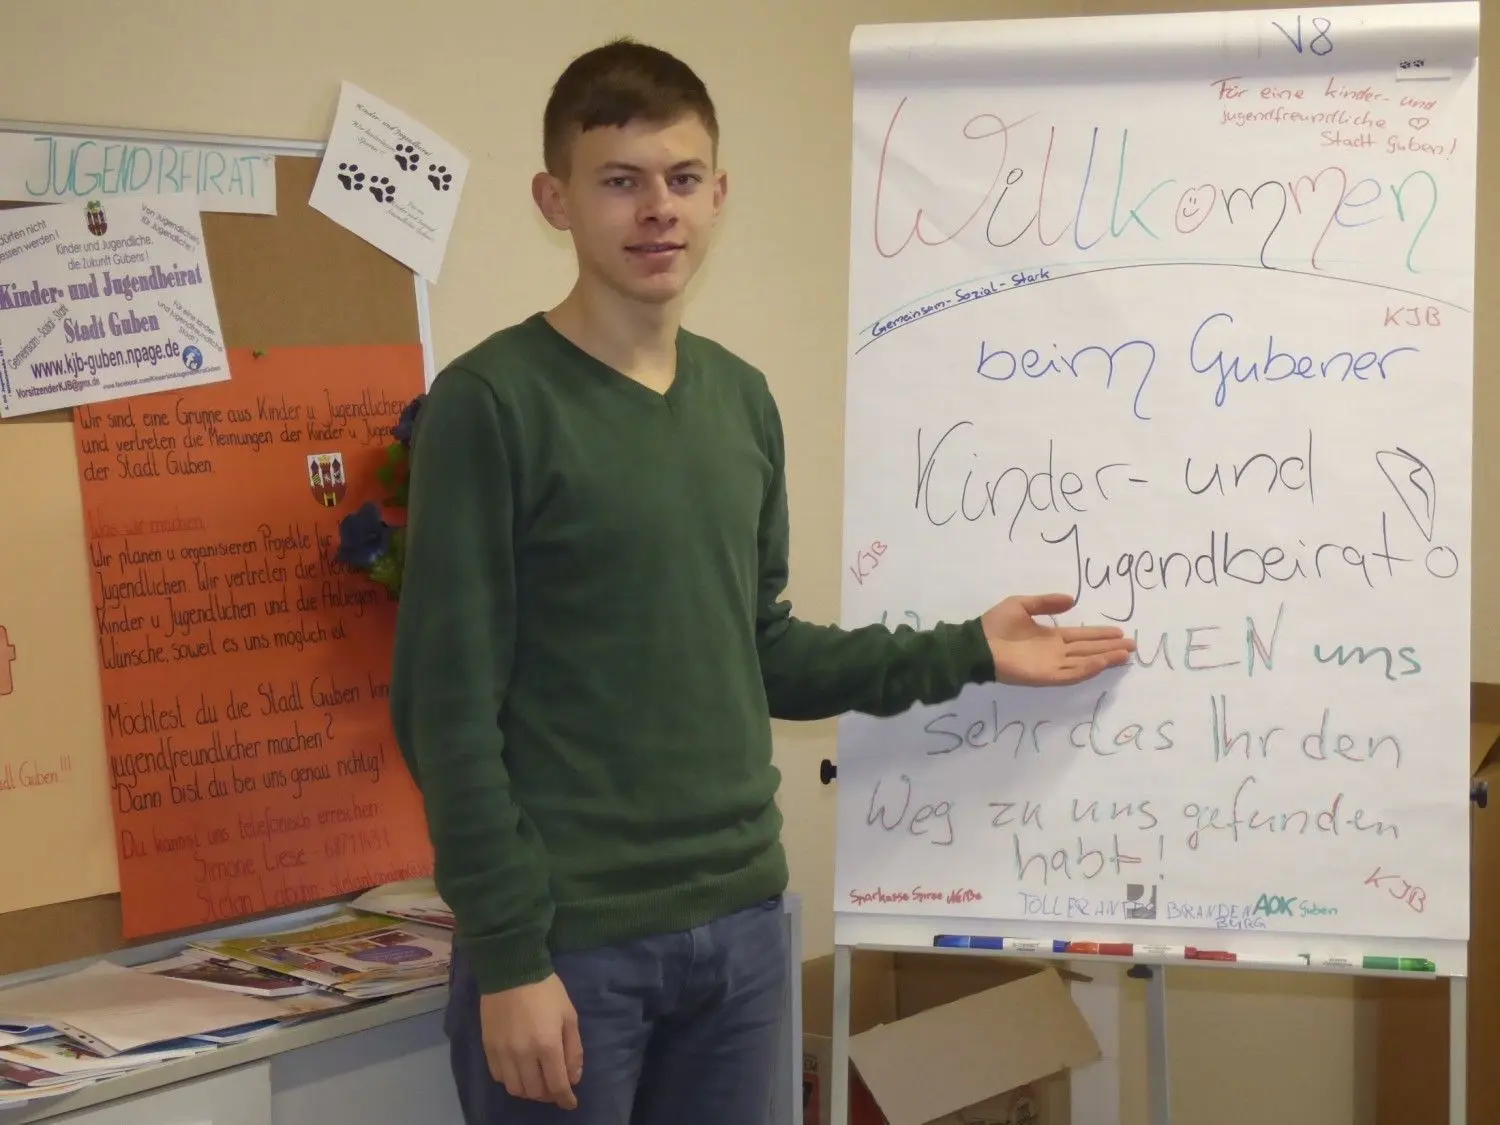 JUGENDBEIRAT
Kinder- und Jugendbeirat
dürfen nicht
Von Jugendlichen
für Jugendliche!
Kinder und Jugendliche,
die Zukunft Gubens!
Kinder- und Jugendbeirat
Stadt Guben
Gemeinsam-Sozial-Stark
für eine kinder-
und jugendfreundliche
www.kjb-guben.npage.de
VorsitzenderKJB@gmx.de
Wir sind eine Gruppe aus Kinder u Jugendlichen
und vertreten die Meinungen der Kinder u
der Stadt Guben.
Was wir machen:
Wir planen u organisieren Projekte für
Jugendlichen. Wir vertreten die
Kinder u Jugendlichen und die Anliegen
Wünsche, soweit es uns möglich ist.
Möchtest du die Stadt Guben
jugendfreundlicher machen?
Dann bist du bei uns genau richtig!
Du kannst uns telefonisch erreichen:
Simone Liese - 68771431
Stefan
Guben!!!
V8
Für eine kinder- und
jugendfreundliche
Stadt Guben!
Willkommen
Gemeinsam-Sozial-Stark
KJB
beim Gubener
Kinder- und
Jugendbeirat
KJB
uns
sehr das Ihr den
Weg zu uns gefunden
habt!
KJB
Sparkasse Spree Neiße
TOLLERANTES BRANDEN
BURG
AOK Guben